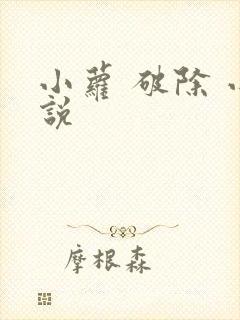 小蘿 破除
說
摩根森